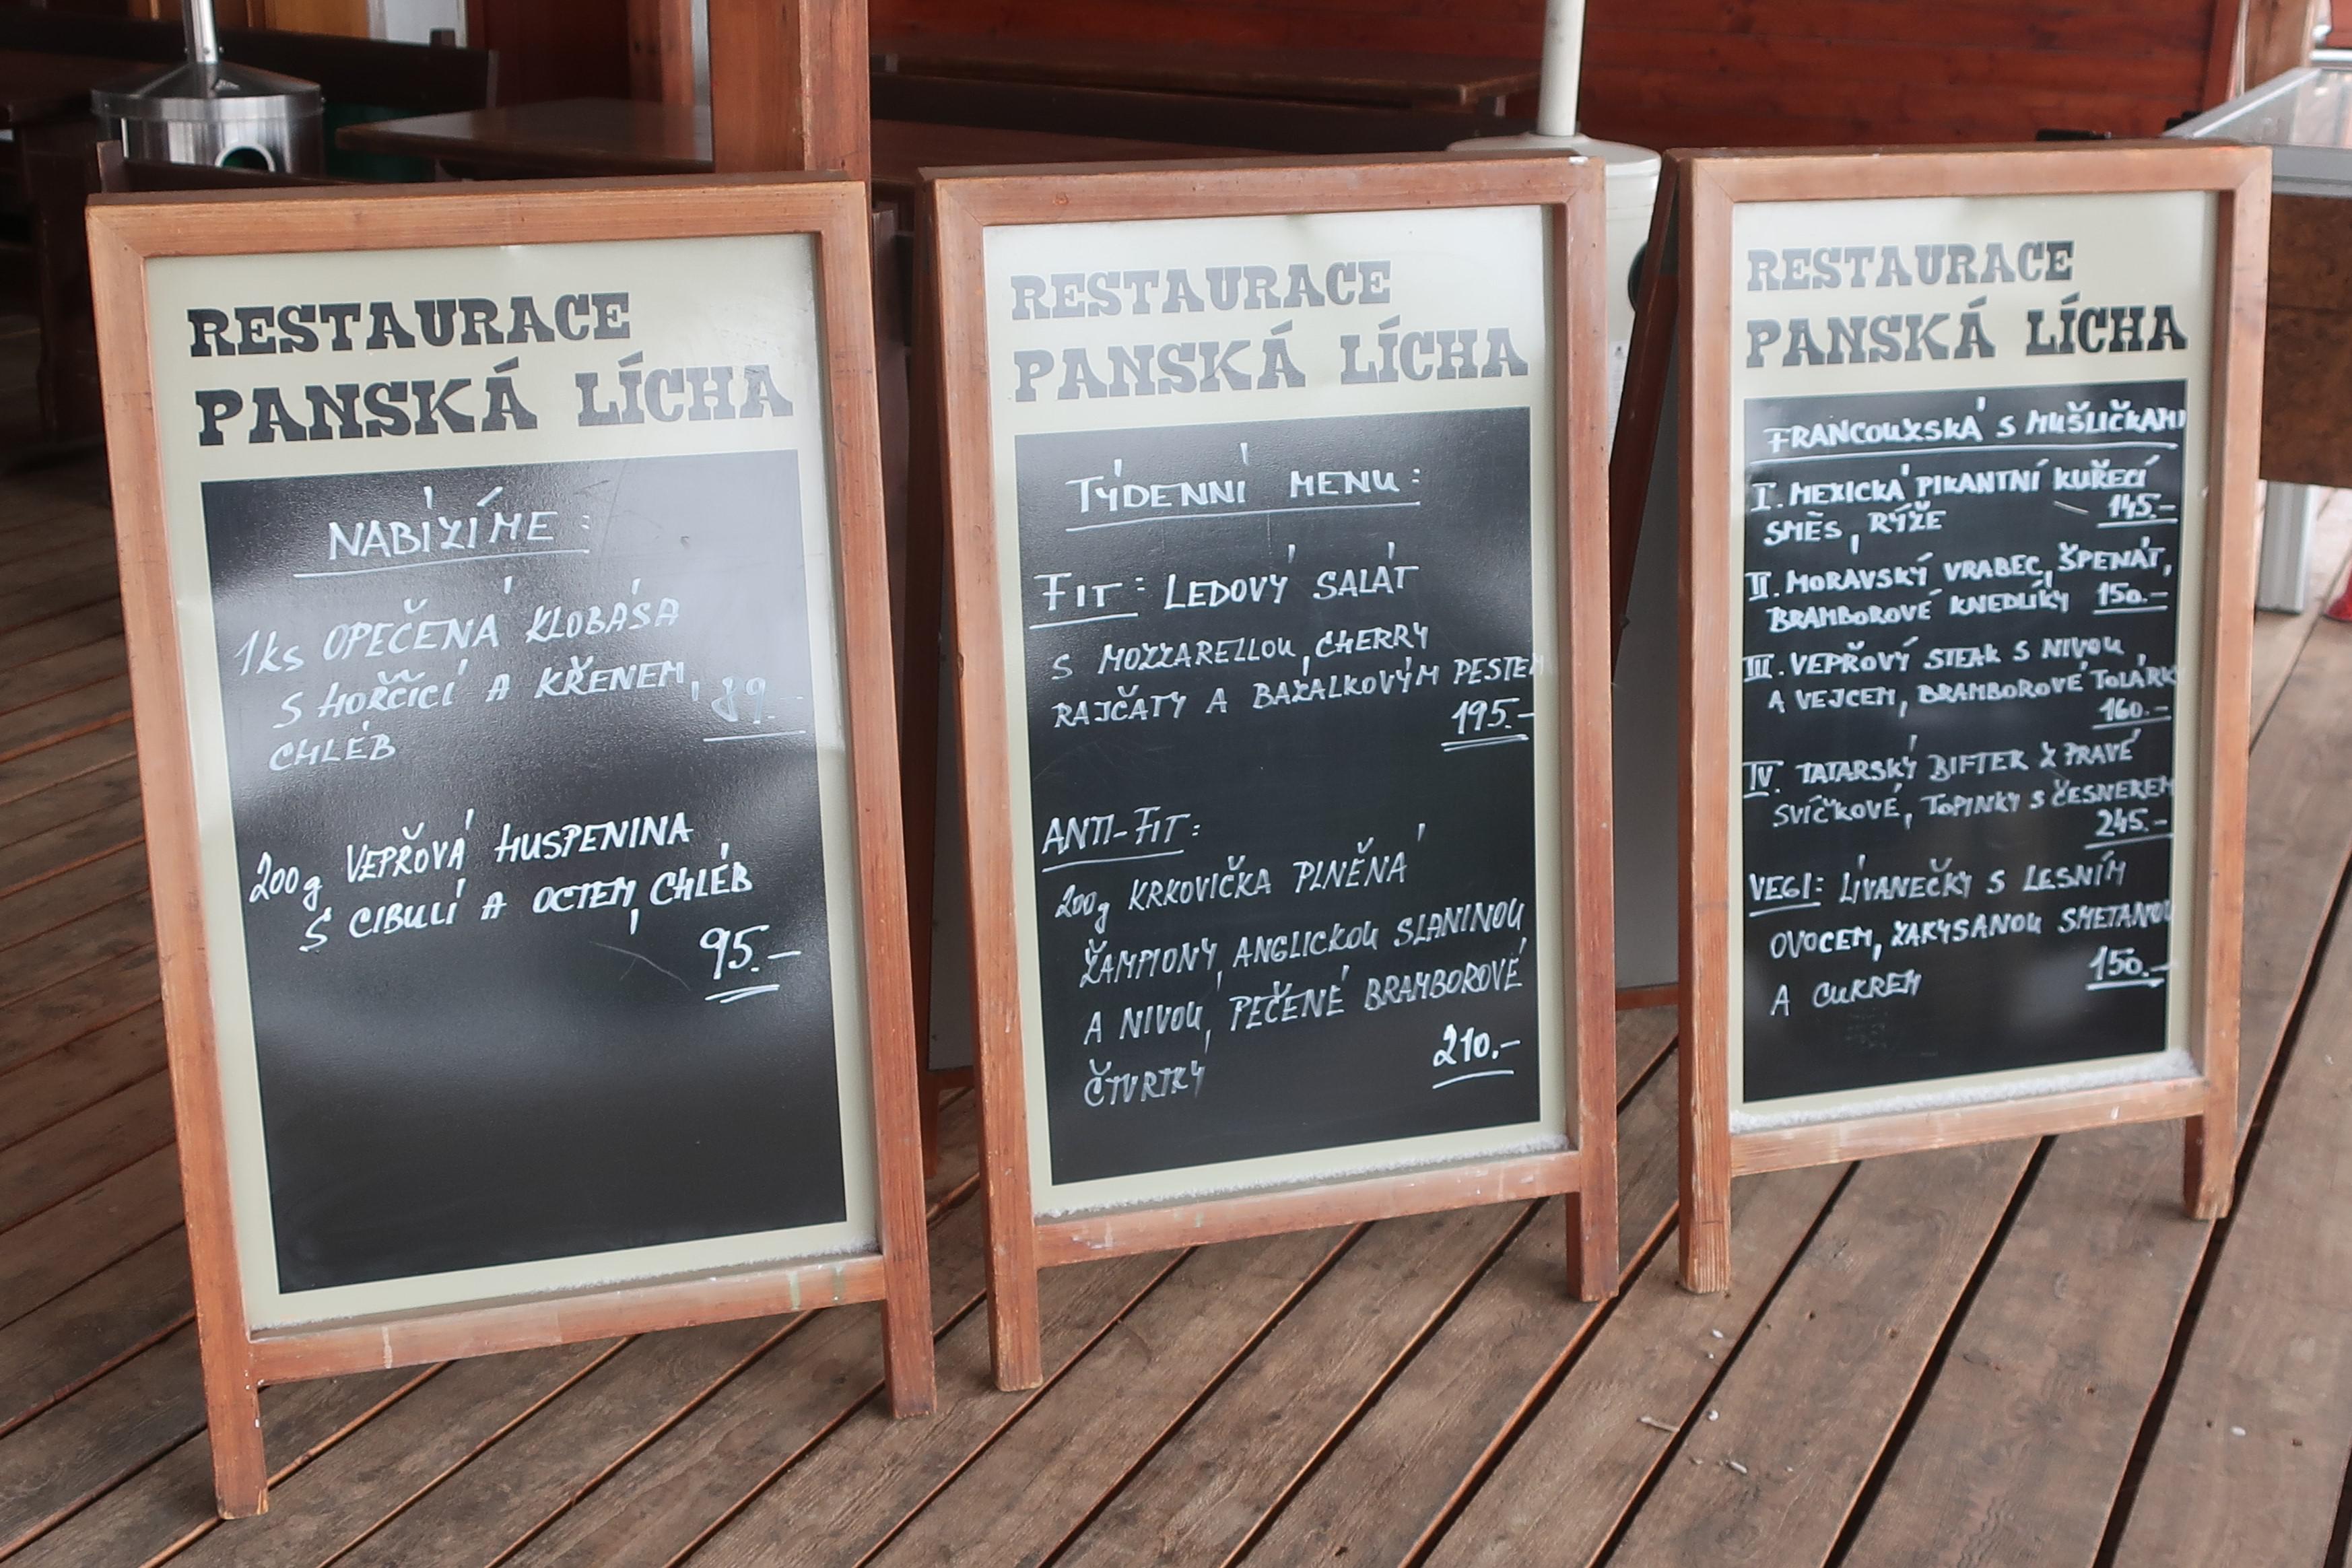 RESTAURACE
PANSKÁ LÍCHA
NABÍZÍME:
1ks OPEČENÁ KLOBÁSA
S HOŘČICÍ A KŘENEM,
CHLÉB
89.-
200g VEPŘOVÁ HUSPENINA
S CIBULÍ A OCTEM, CHLÉB
95.-
RESTAURACE
PANSKÁ LÍCHA
TÝDENNÍ MENU:
FIT: LEDOVÝ SALÁT
S MOZZARELLOU, CHERRY
RAJČATY A BAZALKOVÝM PESTEM
195.-
ANTI-FIT:
200g KRKOVIČKA PLNĚNÁ
ŽAMPIONY, ANGLICKOU SLANINOU
A NIVOU, PEČENÉ BRAMBOROVÉ
ČTVRTKY
210.-
RESTAURACE
PANSKÁ LÍCHA
FRANCOUZSKÁ S MUŠLIČKAMI
I. MEXICKÁ PIKANTNÍ KUŘECÍ
SMĚS, RÝŽE 145.-
II. MORAVSKÝ VRABEC, ŠPENÁT,
BRAMBOROVÉ KNEDLÍKY 150.-
III. VEPŘOVÝ STEAK S NIVOU
A VEJCEM, BRAMBOROVÉ TOLÁRK
160.-
IV. TATARSKÝ BIFTEK Z PRAVÉ
SVÍČKOVÉ, TOPINKY S ČESNEKEM
245.-
VEGI: LÍVANEČKY S LESNÍM
OVOCEM, ZAKYSANOU SMETANOU
A CUKREM 150.-